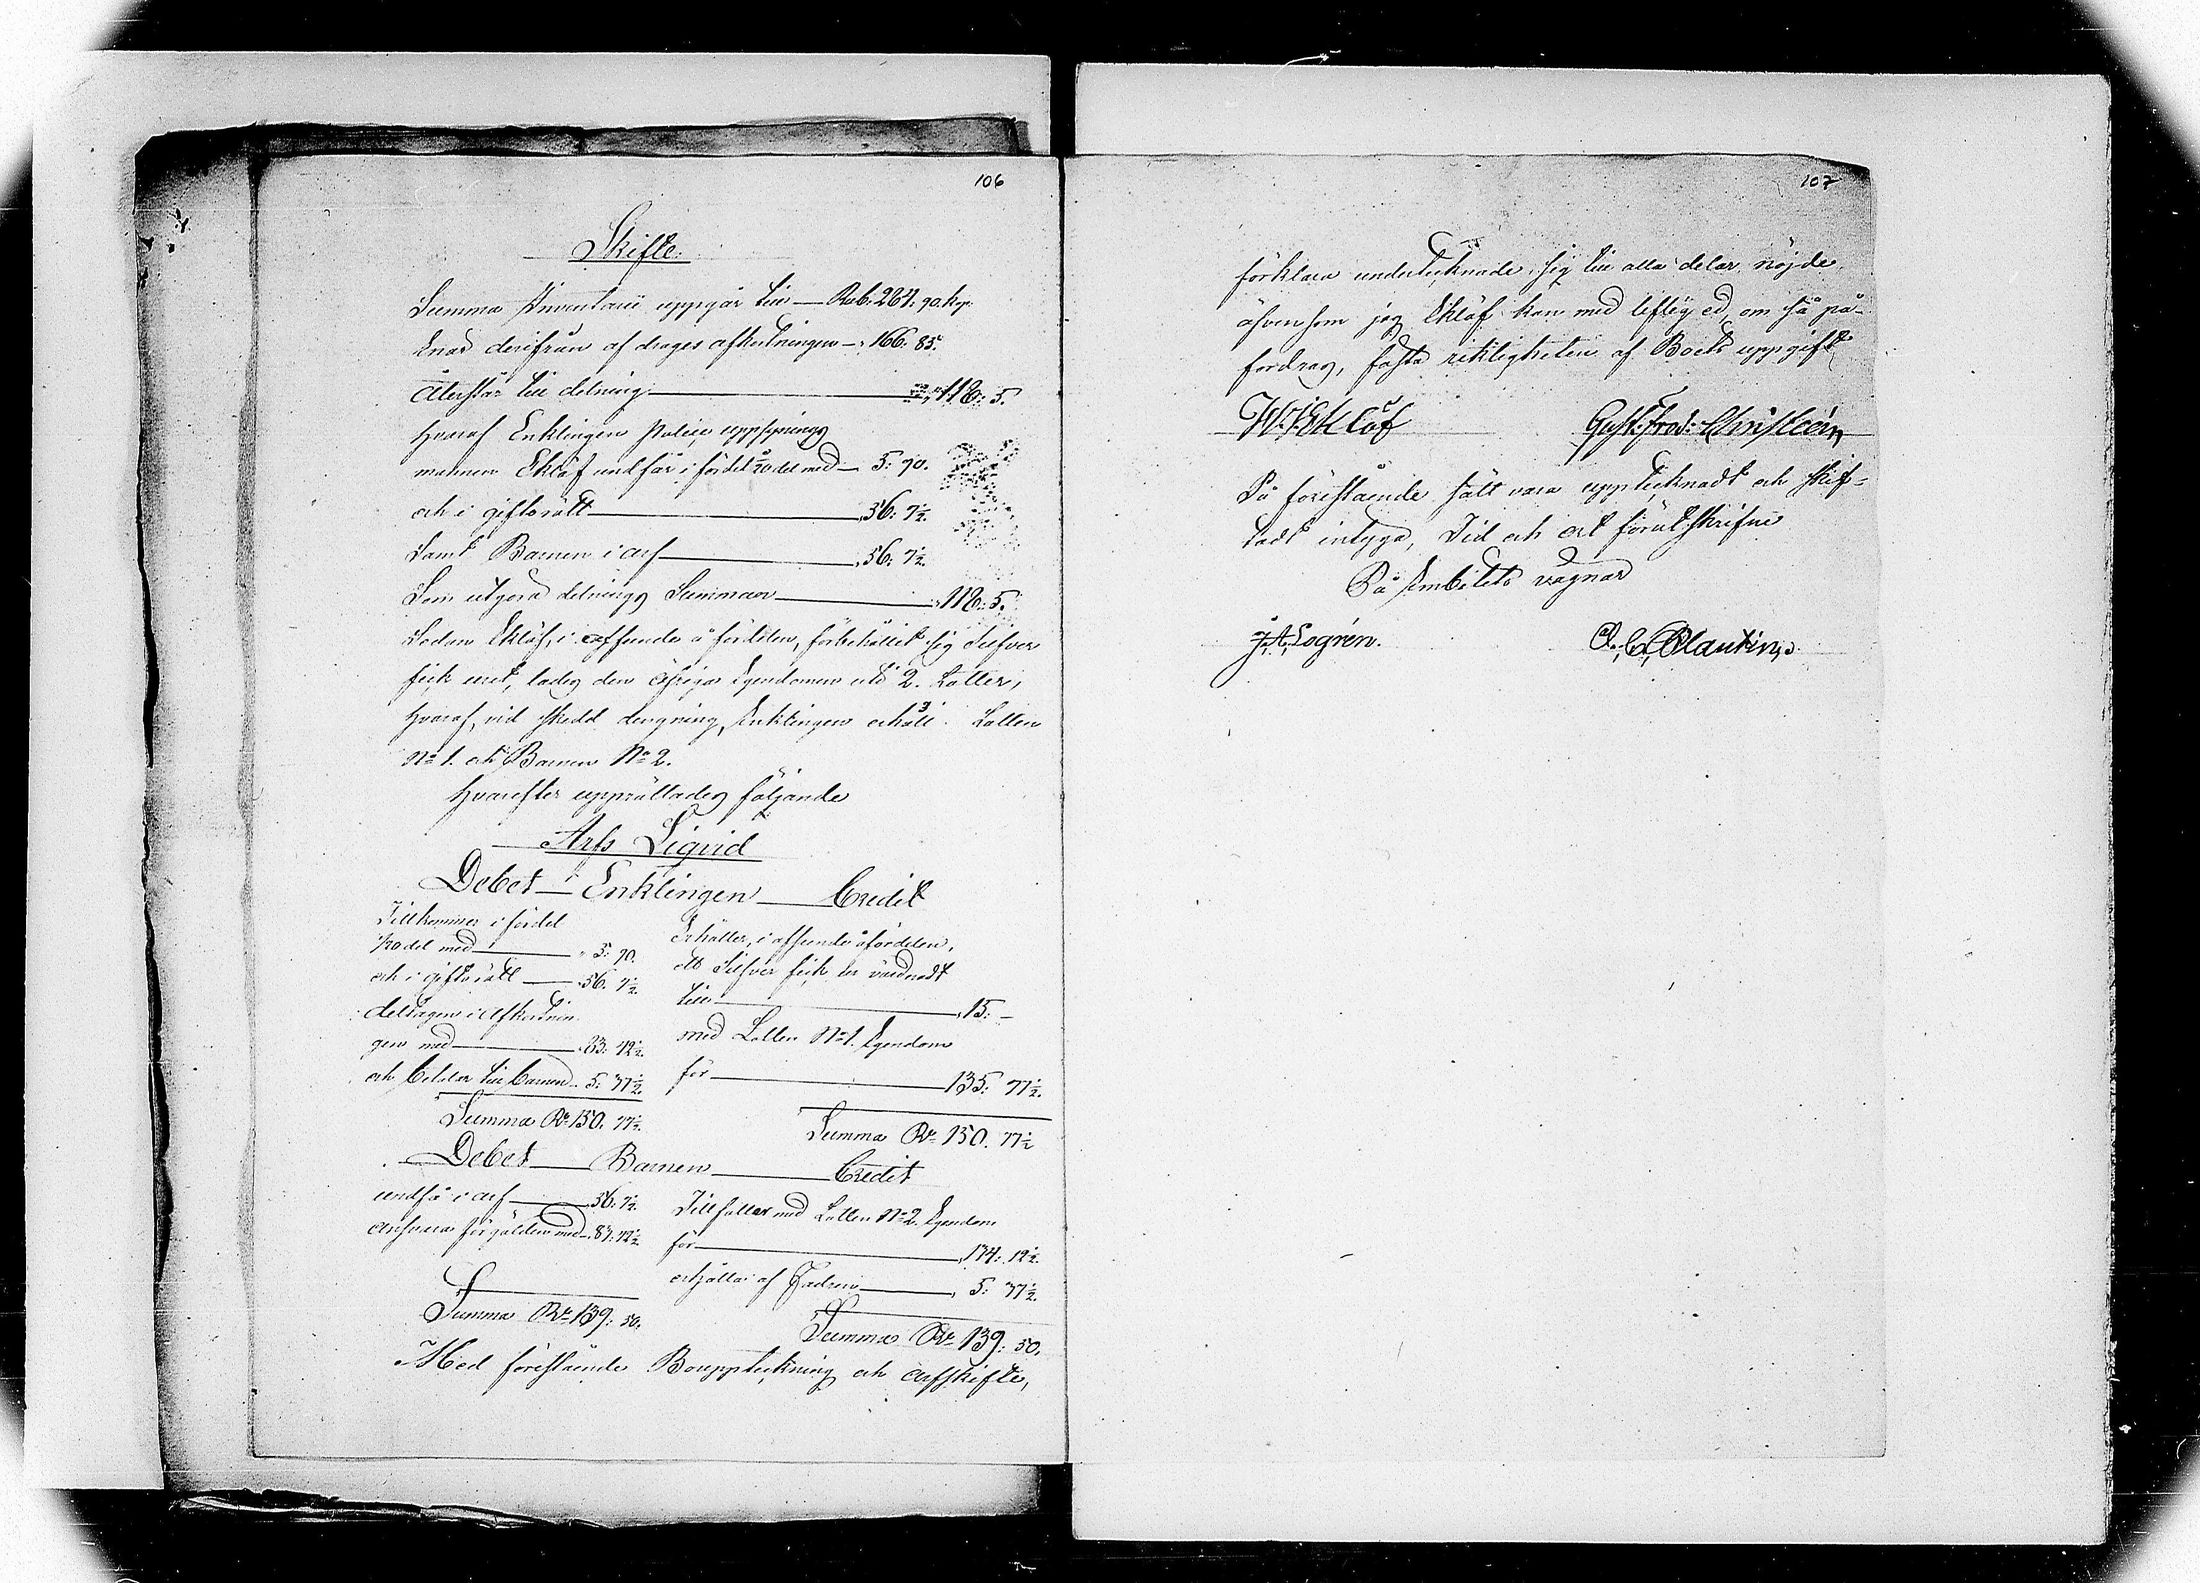 106
Skifte.
Summa Inventarii uppgår till — Rub. 284: 90. kop.
hvar derifrån afdrages afkortningen — 166. 85.
Återstår till delning — 118: 5.
Hvaraf Enklingen Police uppsynings
mannen Eklöf undfår i fördel 1/20 del med — 5: 90.
och i giftorätt — 56: 7½.
Samt Barnen i arf — 56: 7½.
Som utgöra delnings Summan — 118: 5.
Sedan Eklöf, i afseende å fördelen, förbehållit sig Silfver
fick uret, lades den öfriga Egendomen uti 2. Lotter,
hvaraf, vid skedd dragning, Enklingen erhöll Lotten
No 1. och Barnen No 2.
Hvarefter upprättades följande
Arfs Liqvid
Debet — Enklingen — Credit
Tillkommer i fördel
1/20 del med — 5: 90.
och i giftorätt — 56. 7½.
deltagen i Afkortnin
gen med — 83: 42½.
och betalar till barnen — 5: 37½.
Summa Rr 150. 77½.
Erhåller, i afseende å fördelen,
ett Silfver fick ur värderadt
till — 15: —
med Lotten No 1. Egendom
för — 135: 77½.
Summa Rr 150. 77½
Debet — Barnen — Credit
undfå i arf — 56. 7½.
ansvara för gälden med — 83: 42½.
Summa Rr 139: 50.
Tillfaller med Lotten No 2. Egendom
för — 134: 12½.
erhålla af Fadren — 5: 37½.
Summa Rr 139: 50.
Med förestående Bouppteckning och arfskifte,
107
förklara undertecknade, sig till alla delar nöjde,
äfvensom jag Eklöf kan med liflig ed, om så på-
fordras, fästa riktigheten af Boets uppgift
W. J. Eklöf Gust. Fred: Christieern
På förestående sätt vara upptecknadt och skif-
tadt intyga, Tid och ort förut skrifne
På Embetets vägnar
J. A. Logrén. C. Clantin